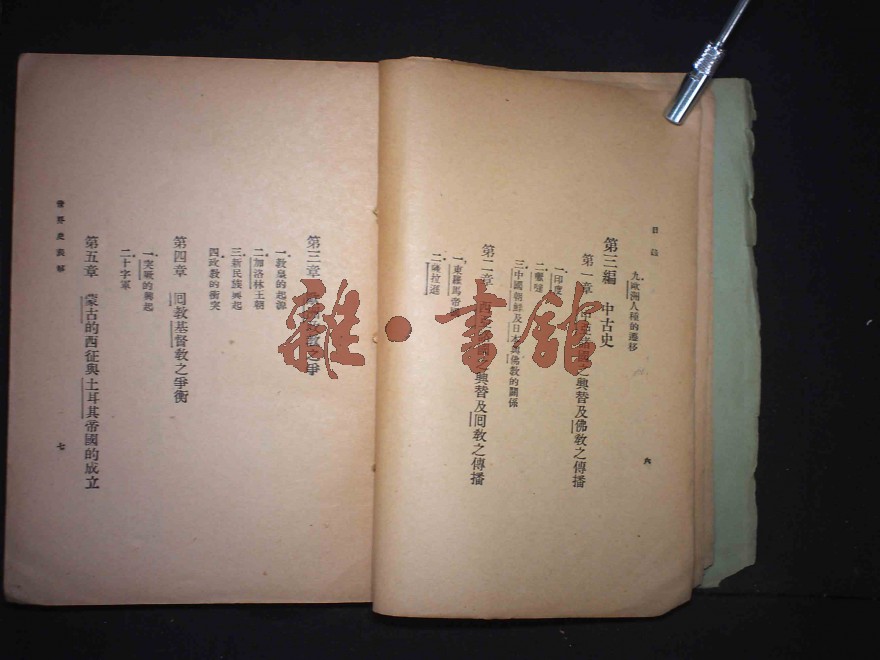 目錄
九 歐洲人種的遷移
第三編 中古史
第一章 中亞諸國之興替及佛教之傳播
一 印度
二 嚈噠
三 中國朝鮮及日本與佛教的關係
第二章 西亞諸國之興替及回教之傳播
一 東羅馬帝國
二 薩拉遜
六
第三章 政教之爭
一 教皇的起源
二 加洛林王朝
三 新民族興起
四 政教的衝突
第四章 回教基督教之爭衡
一 突厥的興起
二 十字軍
第五章 蒙古的西征與土耳其帝國的成立
世界史表解
七
雜·書館